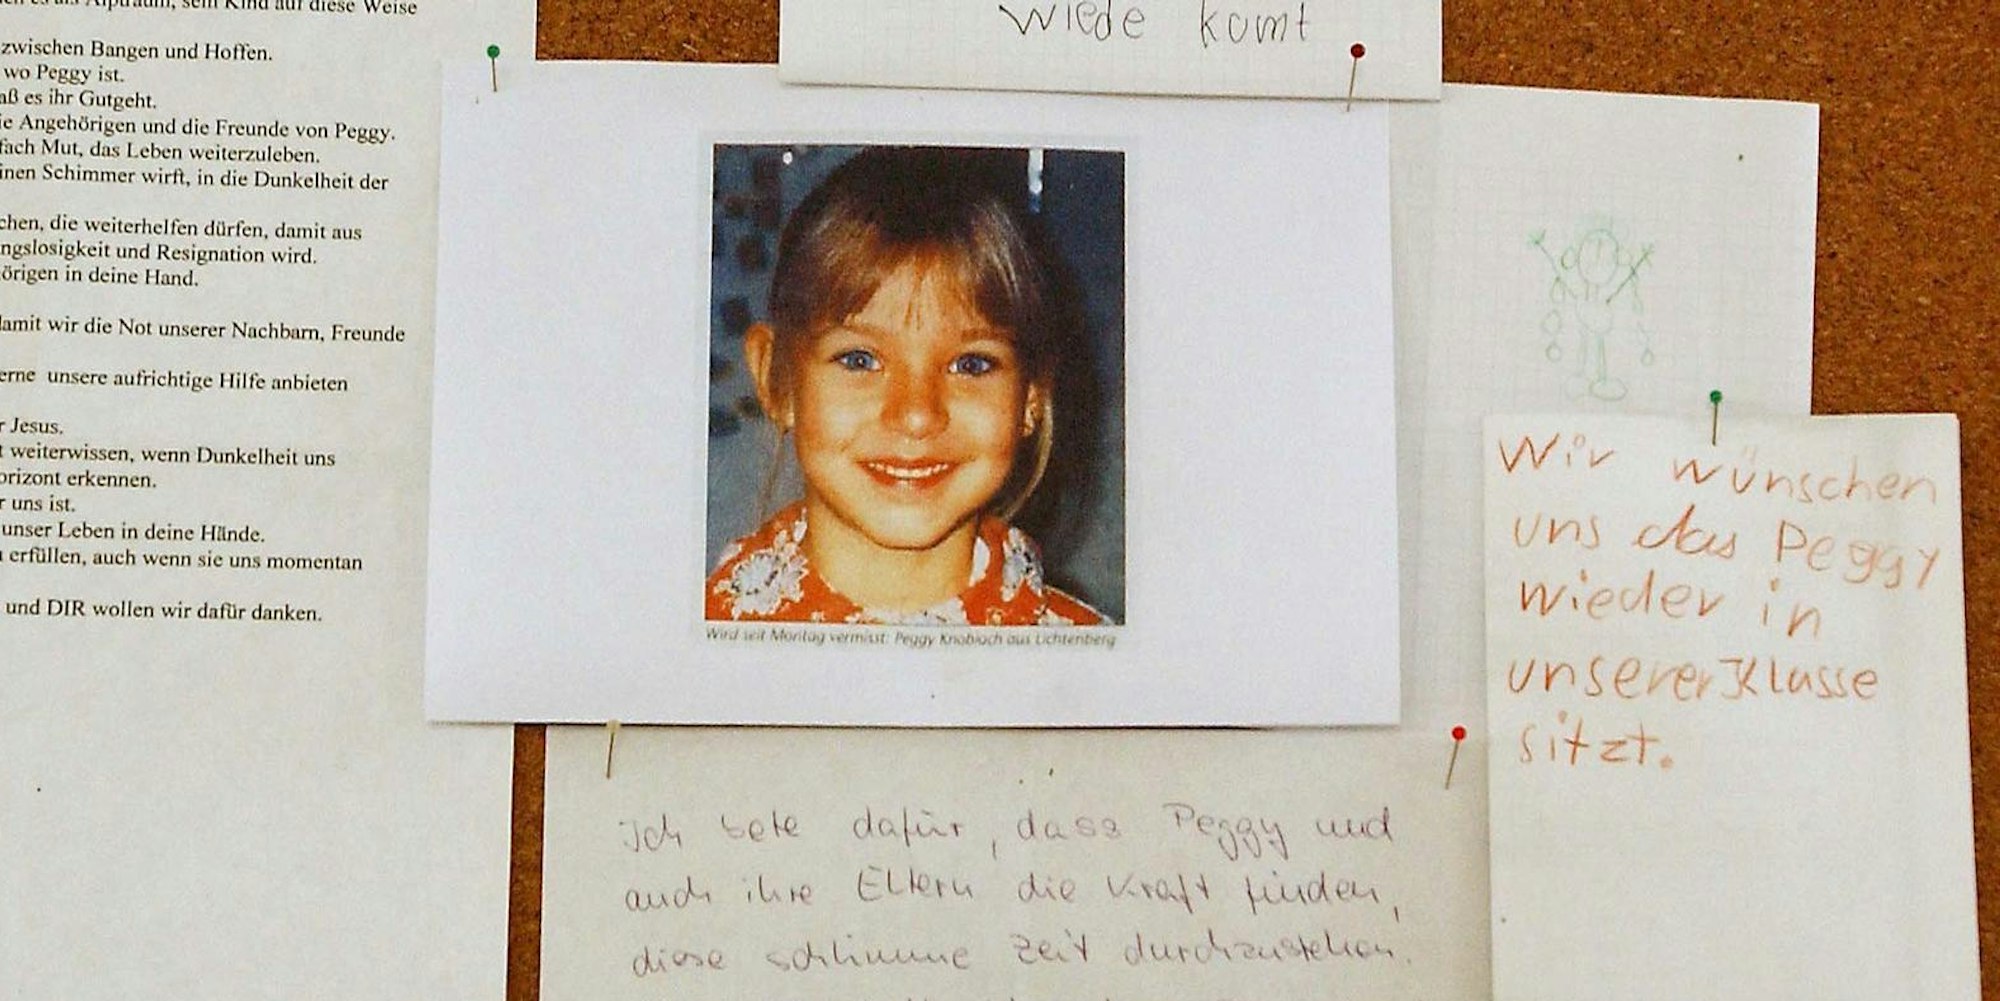 es als Alptraum, sein Kind auf diese Weise
zwischen Bangen und Hoffen.
wo Peggy ist.
aß es ihr Gutgeht.
ie Angehörigen und die Freunde von Peggy.
fach Mut, das Leben weiterzuleben.
inen Schimmer wirft, in die Dunkelheit der
chen, die weiterhelfen dürfen, damit aus
ngslosigkeit und Resignation wird.
örigen in deine Hand.
damit wir die Not unserer Nachbarn, Freunde
erne unsere aufrichtige Hilfe anbieten
r Jesus.
t weiterwissen, wenn Dunkelheit uns
orizont erkennen.
r uns ist.
unser Leben in deine Hände.
erfüllen, auch wenn sie uns momentan
und DIR wollen wir dafür danken.
wiede komt
Wird seit Montag vermisst: Peggy Knobloch aus Lichtenberg
Wir wünschen
uns das Peggy
wieder in
unserer Klasse
sitzt.
Ich bete dafür, dass Peggy und
auch ihre Eltern die Kraft finden,
diese schlimme Zeit durchzustehen.